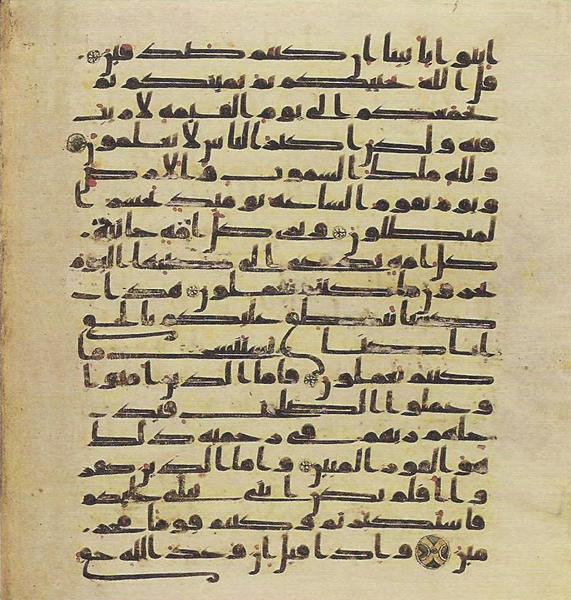 ايتوا بابائنا ان كنتم صدقين
قل الله يحييكم ثم يميتكم ثم
يجمعكم الى يوم القيمة لا ريب
فيه ولكن اكثر الناس لا يعلمون
ولله ملك السموت والارض
ويوم تقوم الساعة يومئذ يخسر ا
لمبطلون وترى كل امة جاثية
كل امة تدعى الى كتبها اليوم
تجزون ما كنتم تعملون هذا
كتبنا ينطق عليكم بالحق
انا كنا نستنسخ ما
كنتم تعملون فاما الذين امنوا
وعملوا الصلحت فيد
خلهم ربهم في رحمته ذلك
هو الفوز المبين واما الذين كفر
وا افلم تكن ايتي تتلى عليكم
فاستكبرتم وكنتم قوما مجر
مين واذا قيل ان وعد الله حق